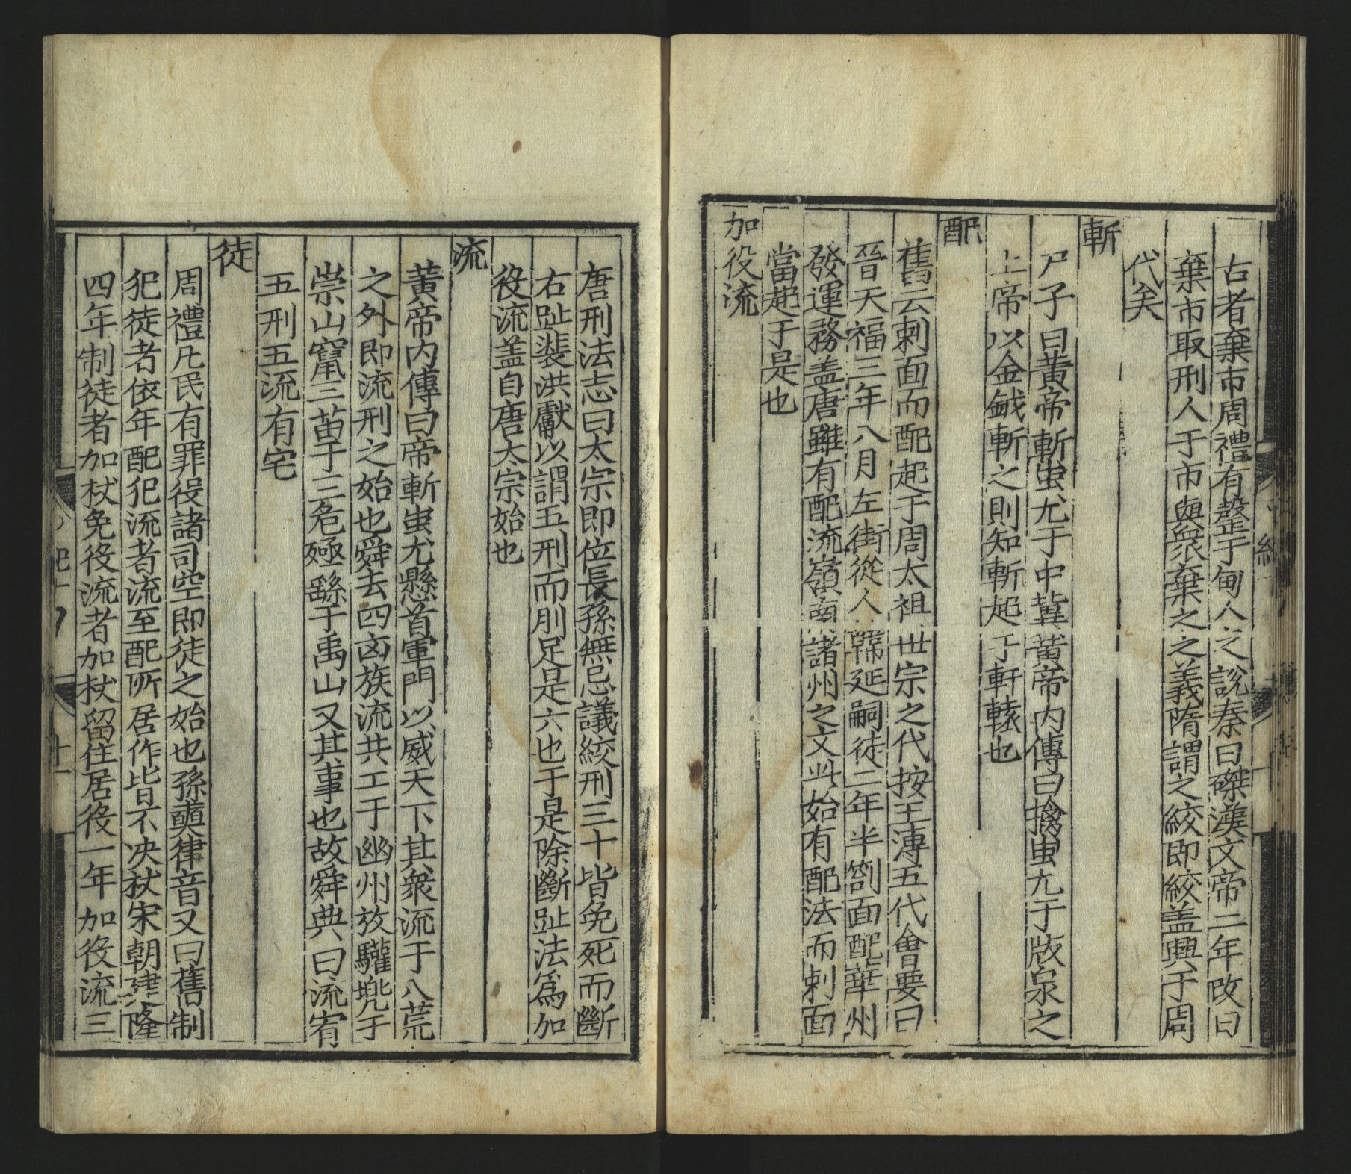 古者棄市周禮有罄于甸人之說秦曰磔漢文帝二年改曰
棄市取刑人于市與眾棄之之義隋謂之絞即絞盖興于周
代矣
斬
尸子曰黃帝斬蚩尤于中冀黃帝内傳曰擒蚩尤于版泉之
上帝以金鉞斬之則知斬起于軒轅也
配
舊云刺面而配起于周太祖世宗之代按王溥五代會要曰
晉天福三年八月左街從人韓延嗣徒二年半劄面配華州
發運務盖唐雖有配流嶺南諸州之文此始有配法而刺面
當起于是也
加役流
唐刑法志曰太宗即位長孫無忌議絞刑三十皆免死而斷
右趾裴洪獻以謂五刑而刖足是六也于是除斷趾法爲加
役流盖自唐太宗始也
流
黃帝内傳曰帝斬蚩尤懸首軍門以威天下其衆流于八荒
之外即流刑之始也舜去四凶族流共工于幽州放驩兠于
崇山竄三苗于三危殛鯀于禹山又其事也故舜典曰流宥
五刑五流有宅
徒
周禮凡民有罪役諸司空即徒之始也孫奭律音又曰舊制
犯徒者依年配犯流者流至配所居作皆不决杖宋朝建隆
四年制徒者加杖免役流者加杖留住居役一年加役流三